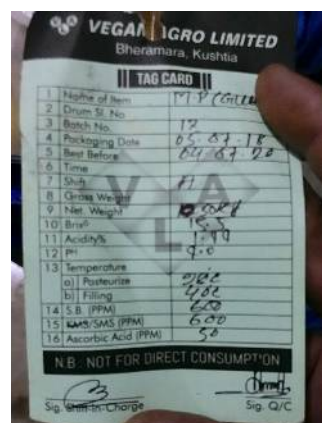 VEGAN AGRO LIMITED
Bheramara, Kushtia
TAG CARD
1 Name of Item M.P
2 Drum Sl. No
3 Batch No. 12
4 Packaging Date 05.07.18
5 Best Before 04.07.20
6 Time
7 Shift A
8 Gross Weight
9 Net. Weight
10 Brix°
11 Acidity%
12 PH
13 Temperature
a) Pasteurize
b) Filling
14 S.B. (PPM) 600
15 KMS/SMS (PPM) 600
16 Ascorbic Acid (PPM) 50
VAL
N.B : NOT FOR DIRECT CONSUMPTION
Sig. Shift-In-Charge
Sig. Q/C